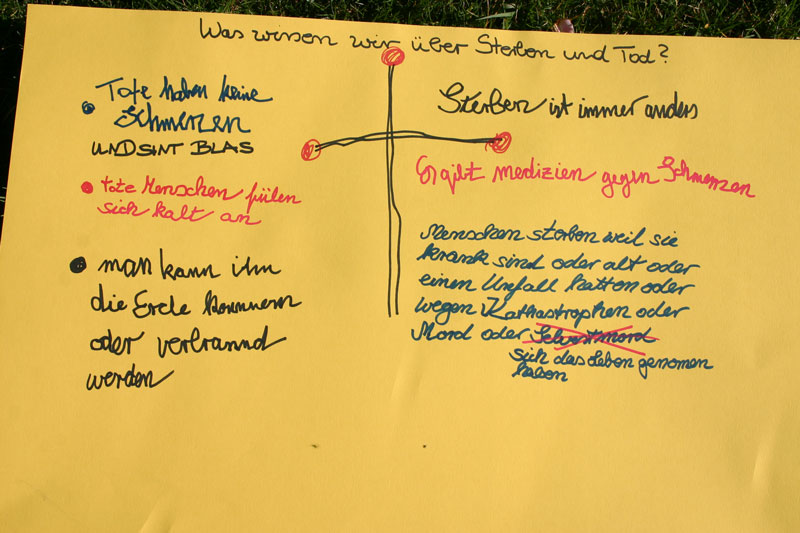 Was wissen wir über Sterben und Tod?
Tote haben keine
Schmerzen
UND SINT BLAS
tote Menschen fülen
sich kalt an
man kann ihn
die Erde kommen
oder verbrannd
werden
Sterben ist immer anders
Es gibt medizien gegen Schmerzen
Menschen sterben weil sie
krank sind oder alt oder
einen Unfall hatten oder
wegen Kathastrophen oder
Mord oder Selbstmord
sich das Leben genomen
haben